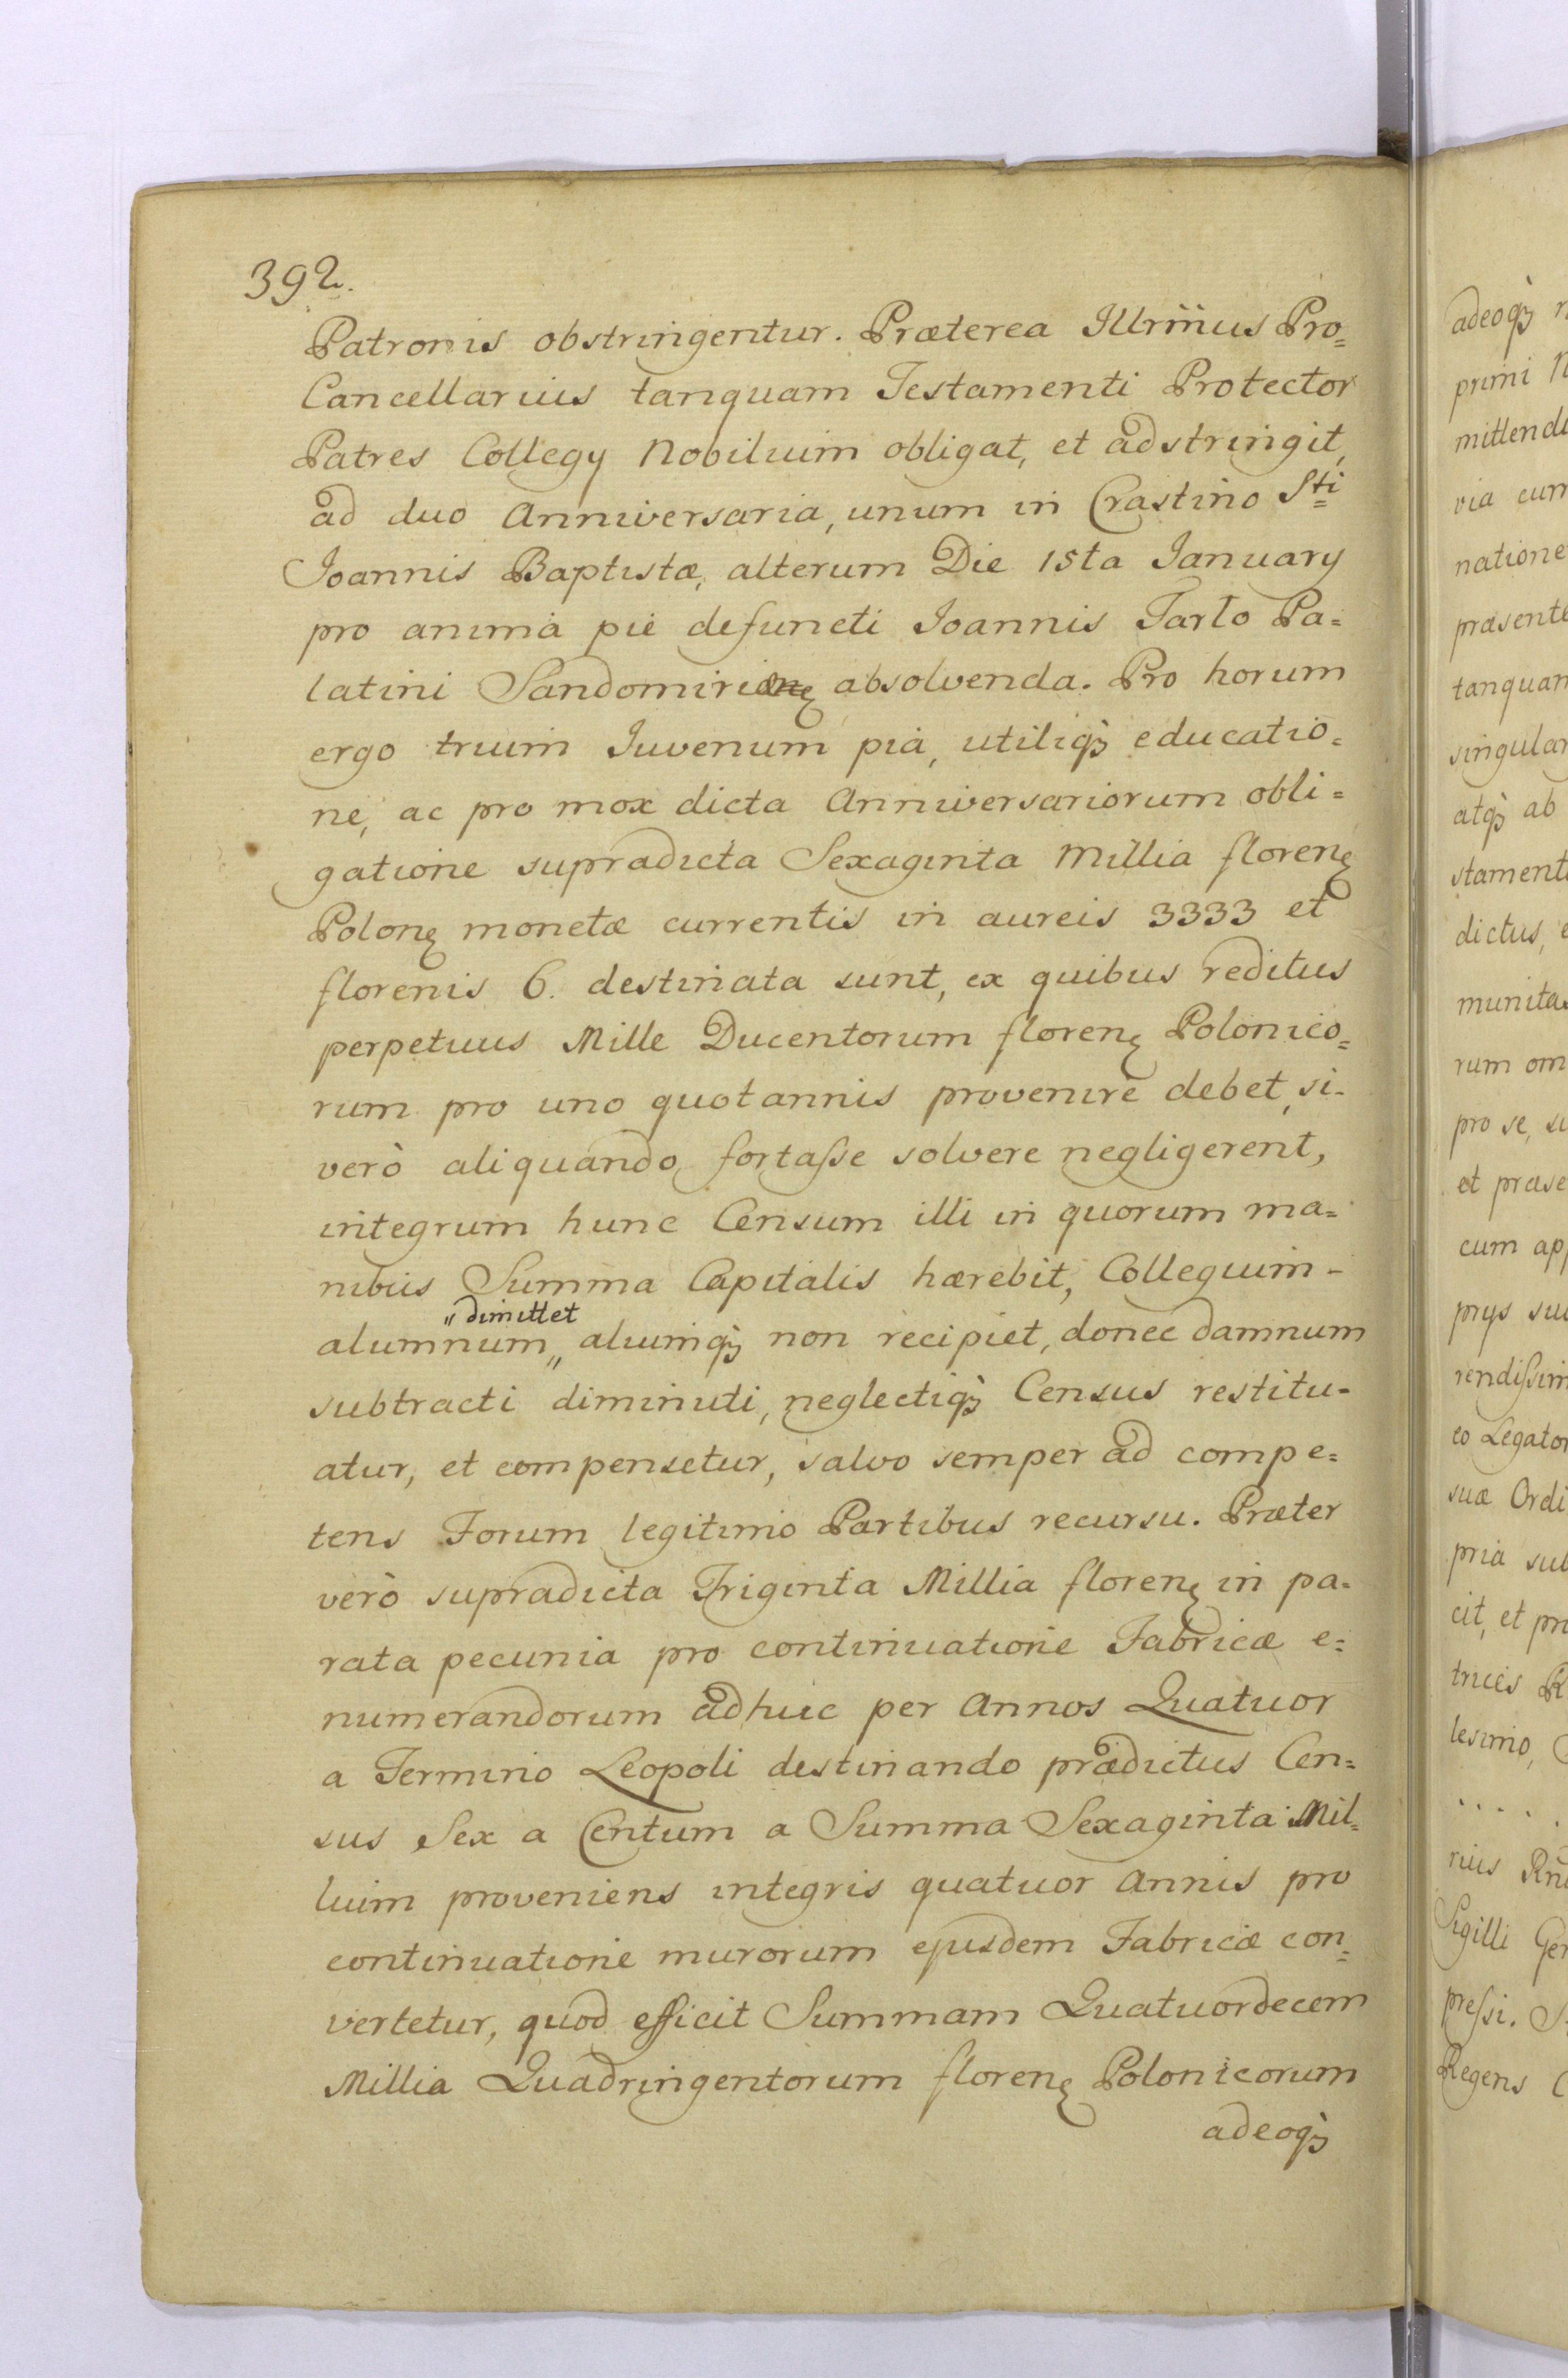 392.
Patronis obstringentur. Præterea Illrm̃us Pro=
Cancellarius tanquam Testamenti Protector
Patres Collegy Nobilium obligat, et adstringit,
ad duo Anniversaria, unum in Crastino Sti
Joannis Baptistæ, alterum Die 15ta January
pro anima pie defuncti Joannis Tarlo Pa=
latini Sandomirien̨ absolvenda. Pro horum
ergo trium Juvenum pia, utiliqȝ educatio=
ne, ac pro mox dicta Anniversariorum obli=
gatione supradicta Sexaginta Millia floren̨
Polon̨ monetæ currentis in aureis 3333 et
florenis 6. destinata sunt, ex quibus reditus
perpetuus Mille Ducentorum floren̨ Polonico=
rum pro uno quotannis provenire debet, si-
verò aliquando fortaſse solvere negligerent,
integrum hunc Censum illi in quorum ma=
nibus Summa Capitalis hærebit, Collegium-
„dimittet
alumnum„ aliumqȝ non recipiet, donec damnum
subtracti diminuti, neglectiqȝ Census restitu-
atur, et compensetur, salvo semper ad compe=
tens Forum legitimo Partibus recursu. Præter
verò supradicta Triginta Millia floren̨ in pa-
rata pecunia pro continuatione Fabricæ e=
numerandorum adhuc per Annos Quatuor
a Termino Leopoli destinando prædictus Cen=
sus Sex a Centum a Summa Sexaginta Mil=
lium proveniens integris quatuor Annis pro
continuatione murorum ejusdem Fabricæ con=
vertetur, quod efficit Summam Quatuordecem
Millia Quadringentorum floren̨ Polonicorum
adeoqȝ
adeoqȝ
primi
mittend
via cum
natione
præsente
tanquam
singular
atqȝ ab
stament
dictus,
munitas
rum om
pro se, su
et præse
cum app
prys su
rendiſsim
co Legator
suæ Ordi
pria sub
cit, et pr
trices R
lesimo,
. . . .
rius
Sigilli Gen
preſsi. S
Regens C